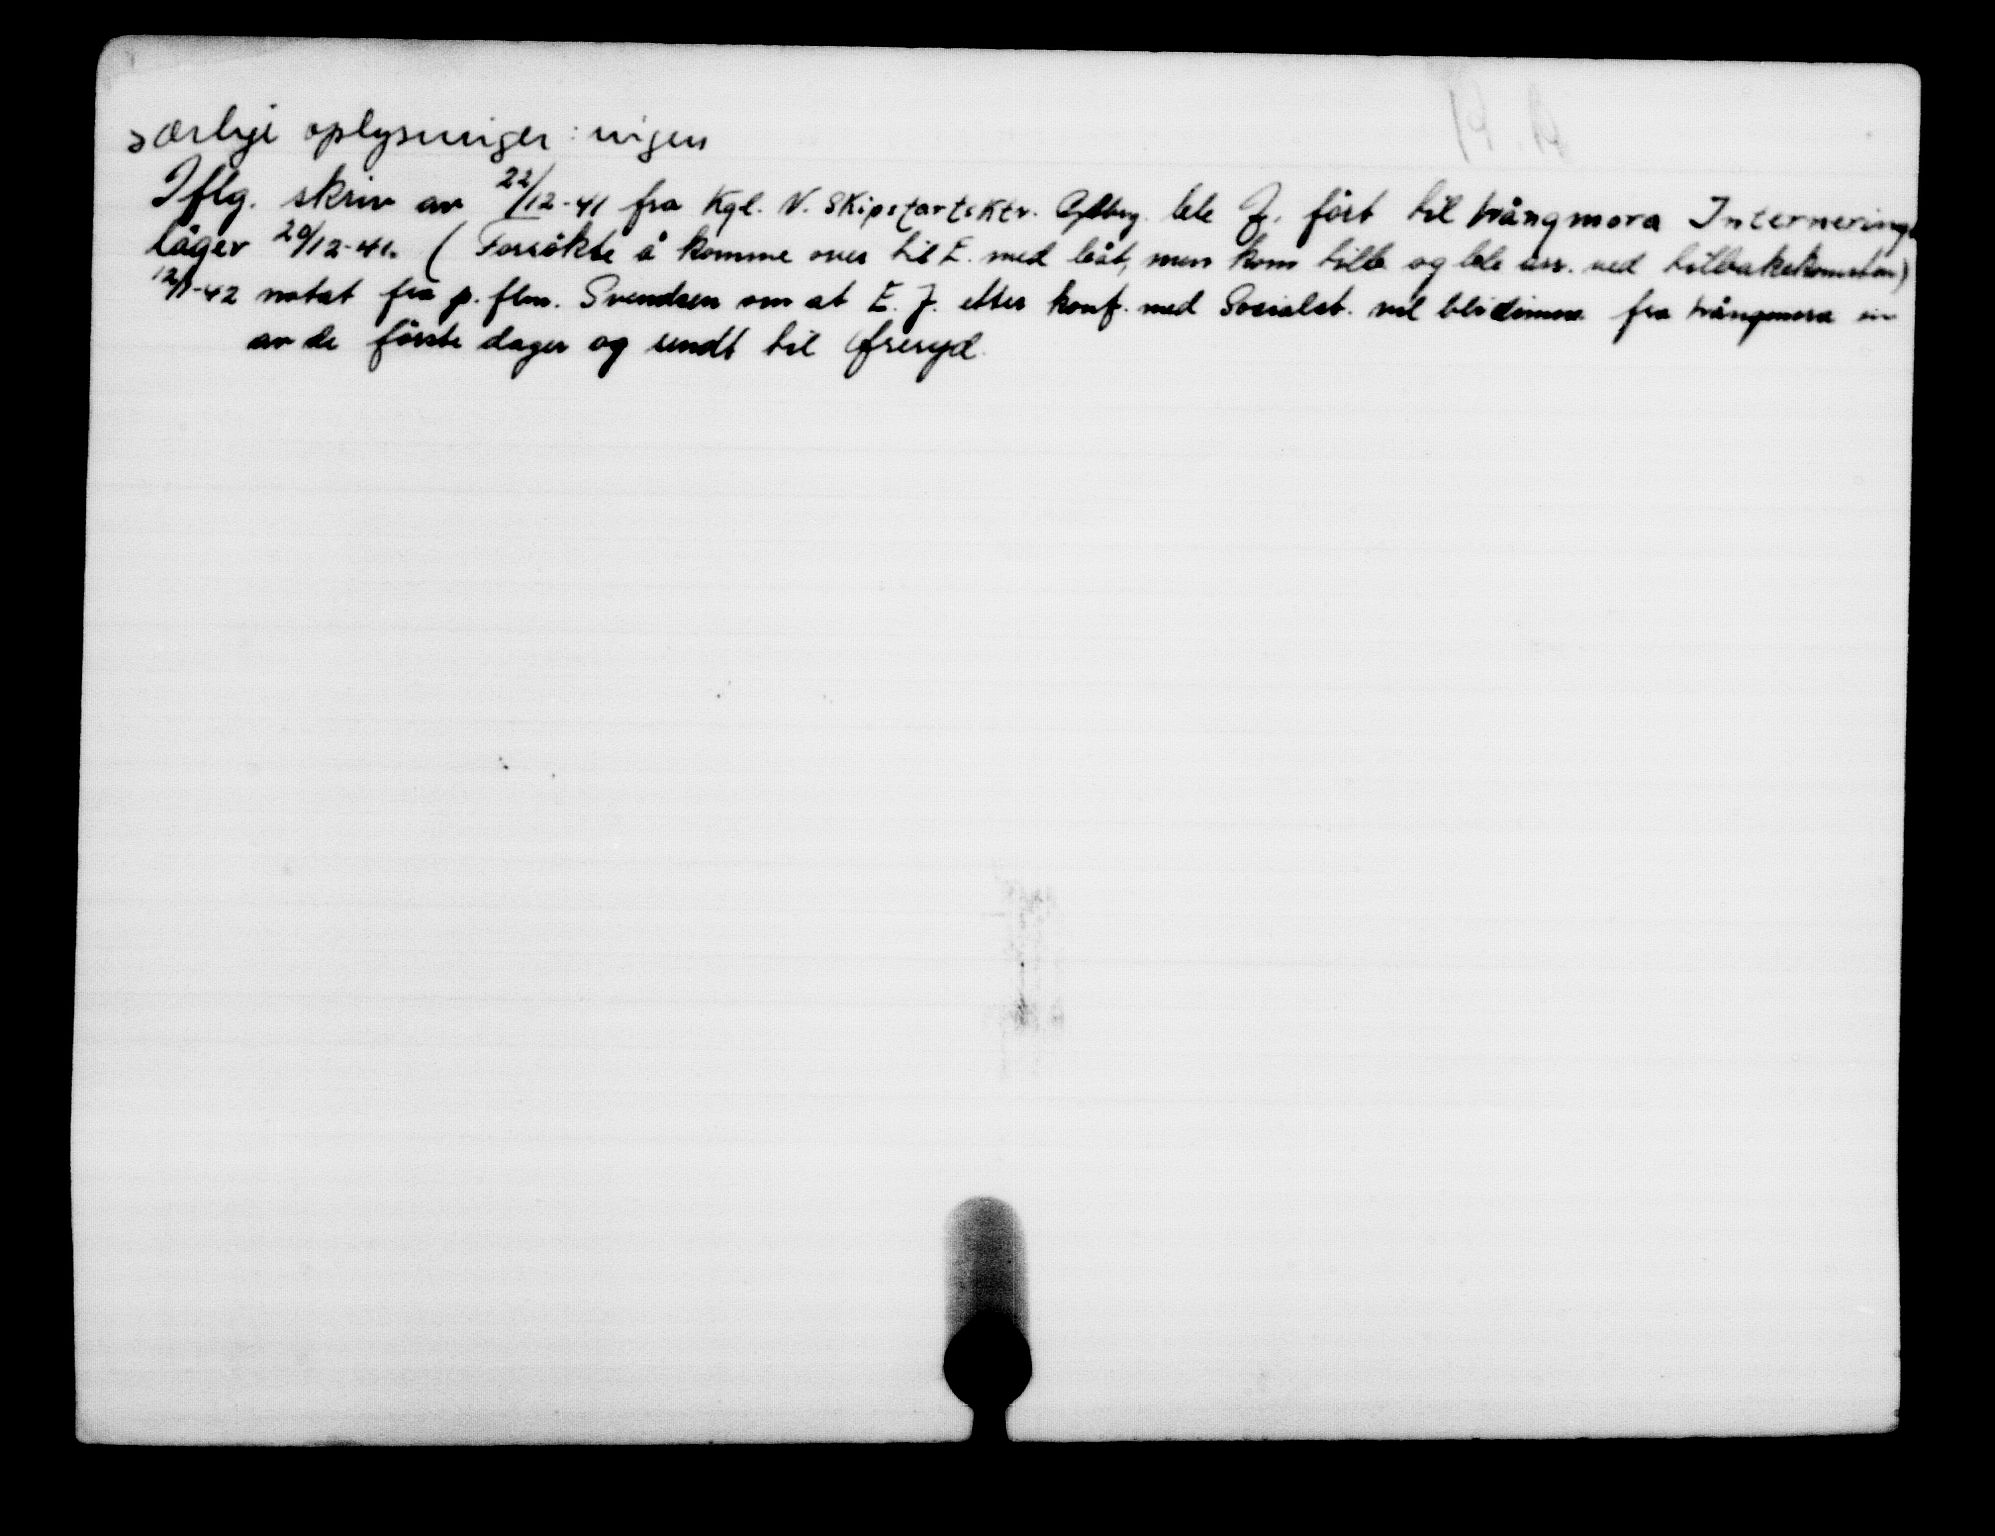 særlige oplysninger: ingen
Iflg. skriv av 22/12-41 fra Kgl. N. Skipsfartsktr. Gøtbrg. ble J. fört til Vrångmora Internerings
läger 20/12-41. (Forsökte å komme over til E. med båt, men kom tilb. og ble arr. ved tilbakekomsten)
12/1-42 notat fra p. flm. Svendsen om at E. J. etter konf. med Socialst. vil bli dimm. fra Vrångmora en
av de förste dager og sendt til Öfreryd.